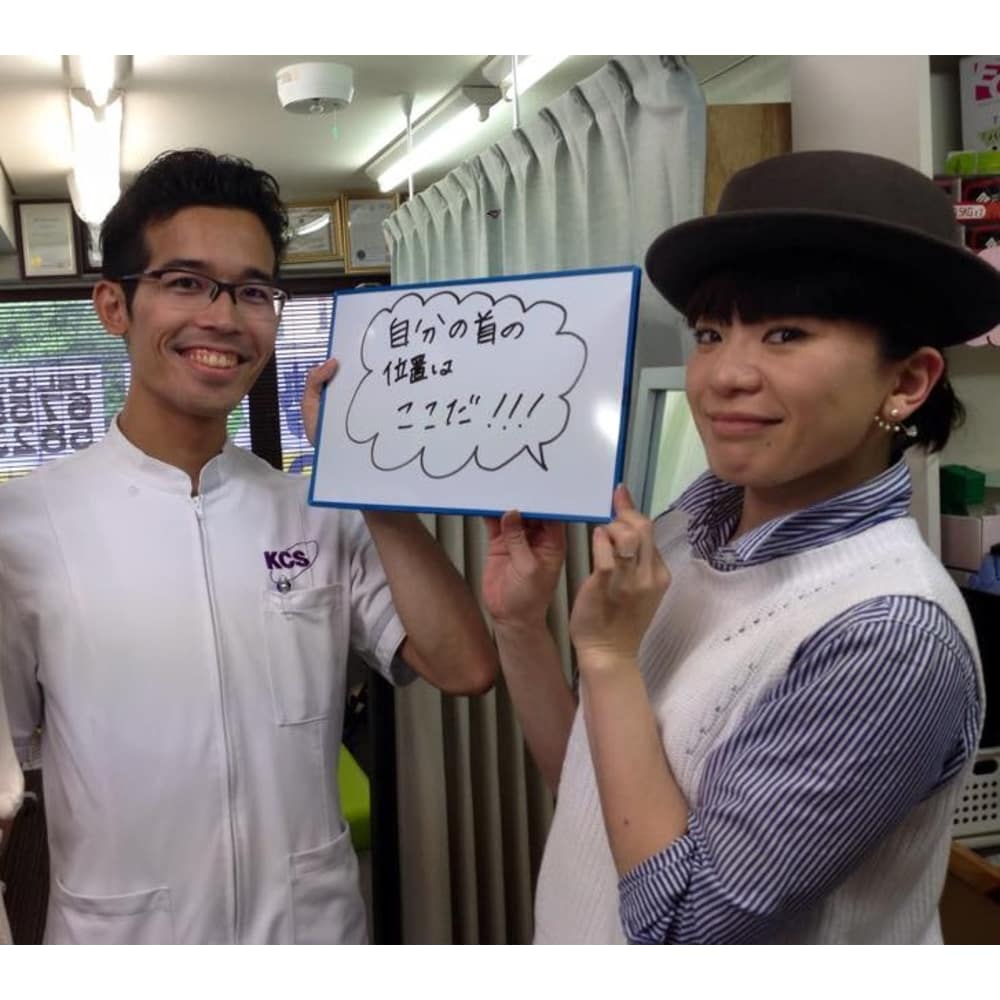 自分の首の
位置は
ここだ!!!
KCS